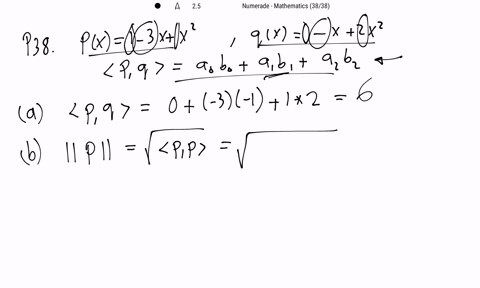 2.5 Numerade - Mathematics (38/38)
P38. P(x) = 1 - 3x + 1x² , q(x) = 0 - x + 2x²
<P,q> = a₀b₀ + a₁b₁ + a₂b₂ ←
(a) <P,q> = 0 + (-3)(-1) + 1*2 = 6
(b) ||P|| = √<P,P> = √